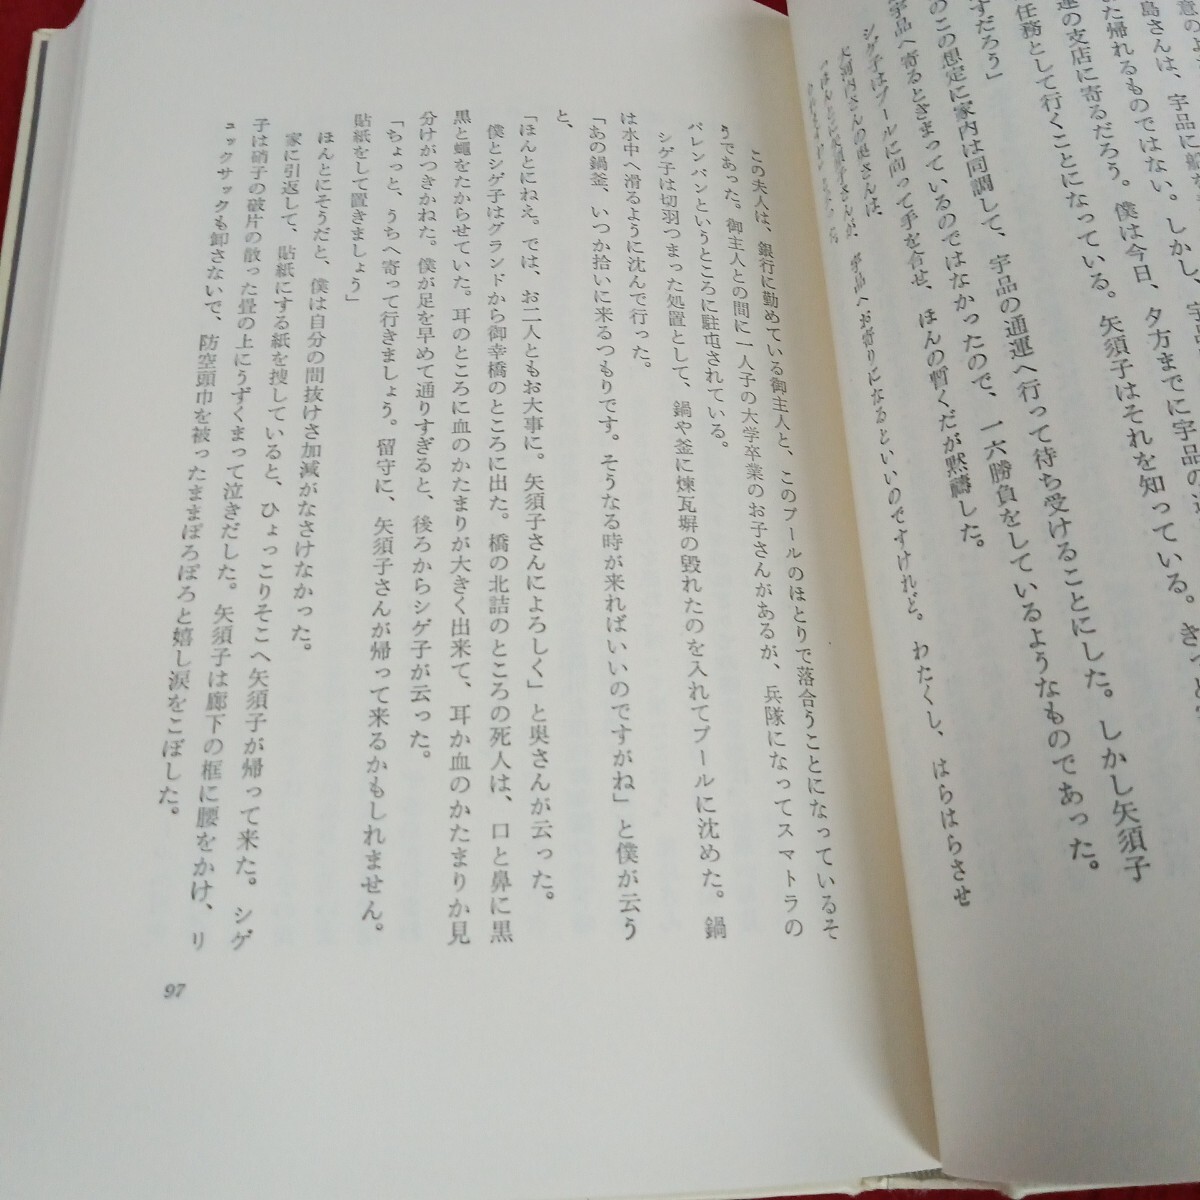 島さんは、宇品に
また帰れるものではない。しかし、宇品の
運の支店に寄るだろう。僕は今日、夕方までに宇品
任務として行くことになっている。矢須子はそれを知っている。きっと
すだろう」
のこの想定に家内は同調して、宇品の通運へ行って待ち受けることにした。しかし矢須子
宇品へ寄るときまっているのではなかったので、一六勝負をしているようなものであった。
シゲ子はプールに向って手を合せ、ほんの暫くだが黙禱した。
大河内さんの奥さんは、
「ほんとに矢須子さんが、宇品へお寄りになるといいのですけれど。わたくし、はらはらさせ
この夫人は、銀行に勤めている御主人と、このプールのほとりで落合うことになっているそ
うであった。御主人との間に一人子の大学卒業のお子さんがあるが、兵隊になってスマトラの
パレンバンというところに駐屯されている。
シゲ子は切羽つまった処置として、鍋や釜に煉瓦塀の毀れたのを入れてプールに沈めた。鍋
は水中へ滑るように沈んで行った。
「あの鍋釜、いつか拾いに来るつもりです。そうなる時が来ればいいのですがね」と僕が云う
と、
「ほんとにねえ。では、お二人ともお大事に。矢須子さんによろしく」と奥さんが云った。
僕とシゲ子はグランドから御幸橋のところに出た。橋の北詰のところの死人は、口と鼻に黒
黒と蠅をたからせていた。耳のところに血のかたまりが大きく出来て、耳か血のかたまりか見
分けがつきかねた。僕が足を早めて通りすぎると、後ろからシゲ子が云った。
「ちょっと、うちへ寄って行きましょう。留守に、矢須子さんが帰って来るかもしれません。
貼紙をして置きましょう」
ほんとにそうだと、僕は自分の間抜けさ加減がなさけなかった。
家に引返して、貼紙にする紙を捜していると、ひょっこりそこへ矢須子が帰って来た。シゲ
子は硝子の破片の散った畳の上にうずくまって泣きだした。矢須子は廊下の框に腰をかけ、リ
ュックサックも卸さないで、防空頭巾を被ったままぽろぽろと嬉し涙をこぼした。
97